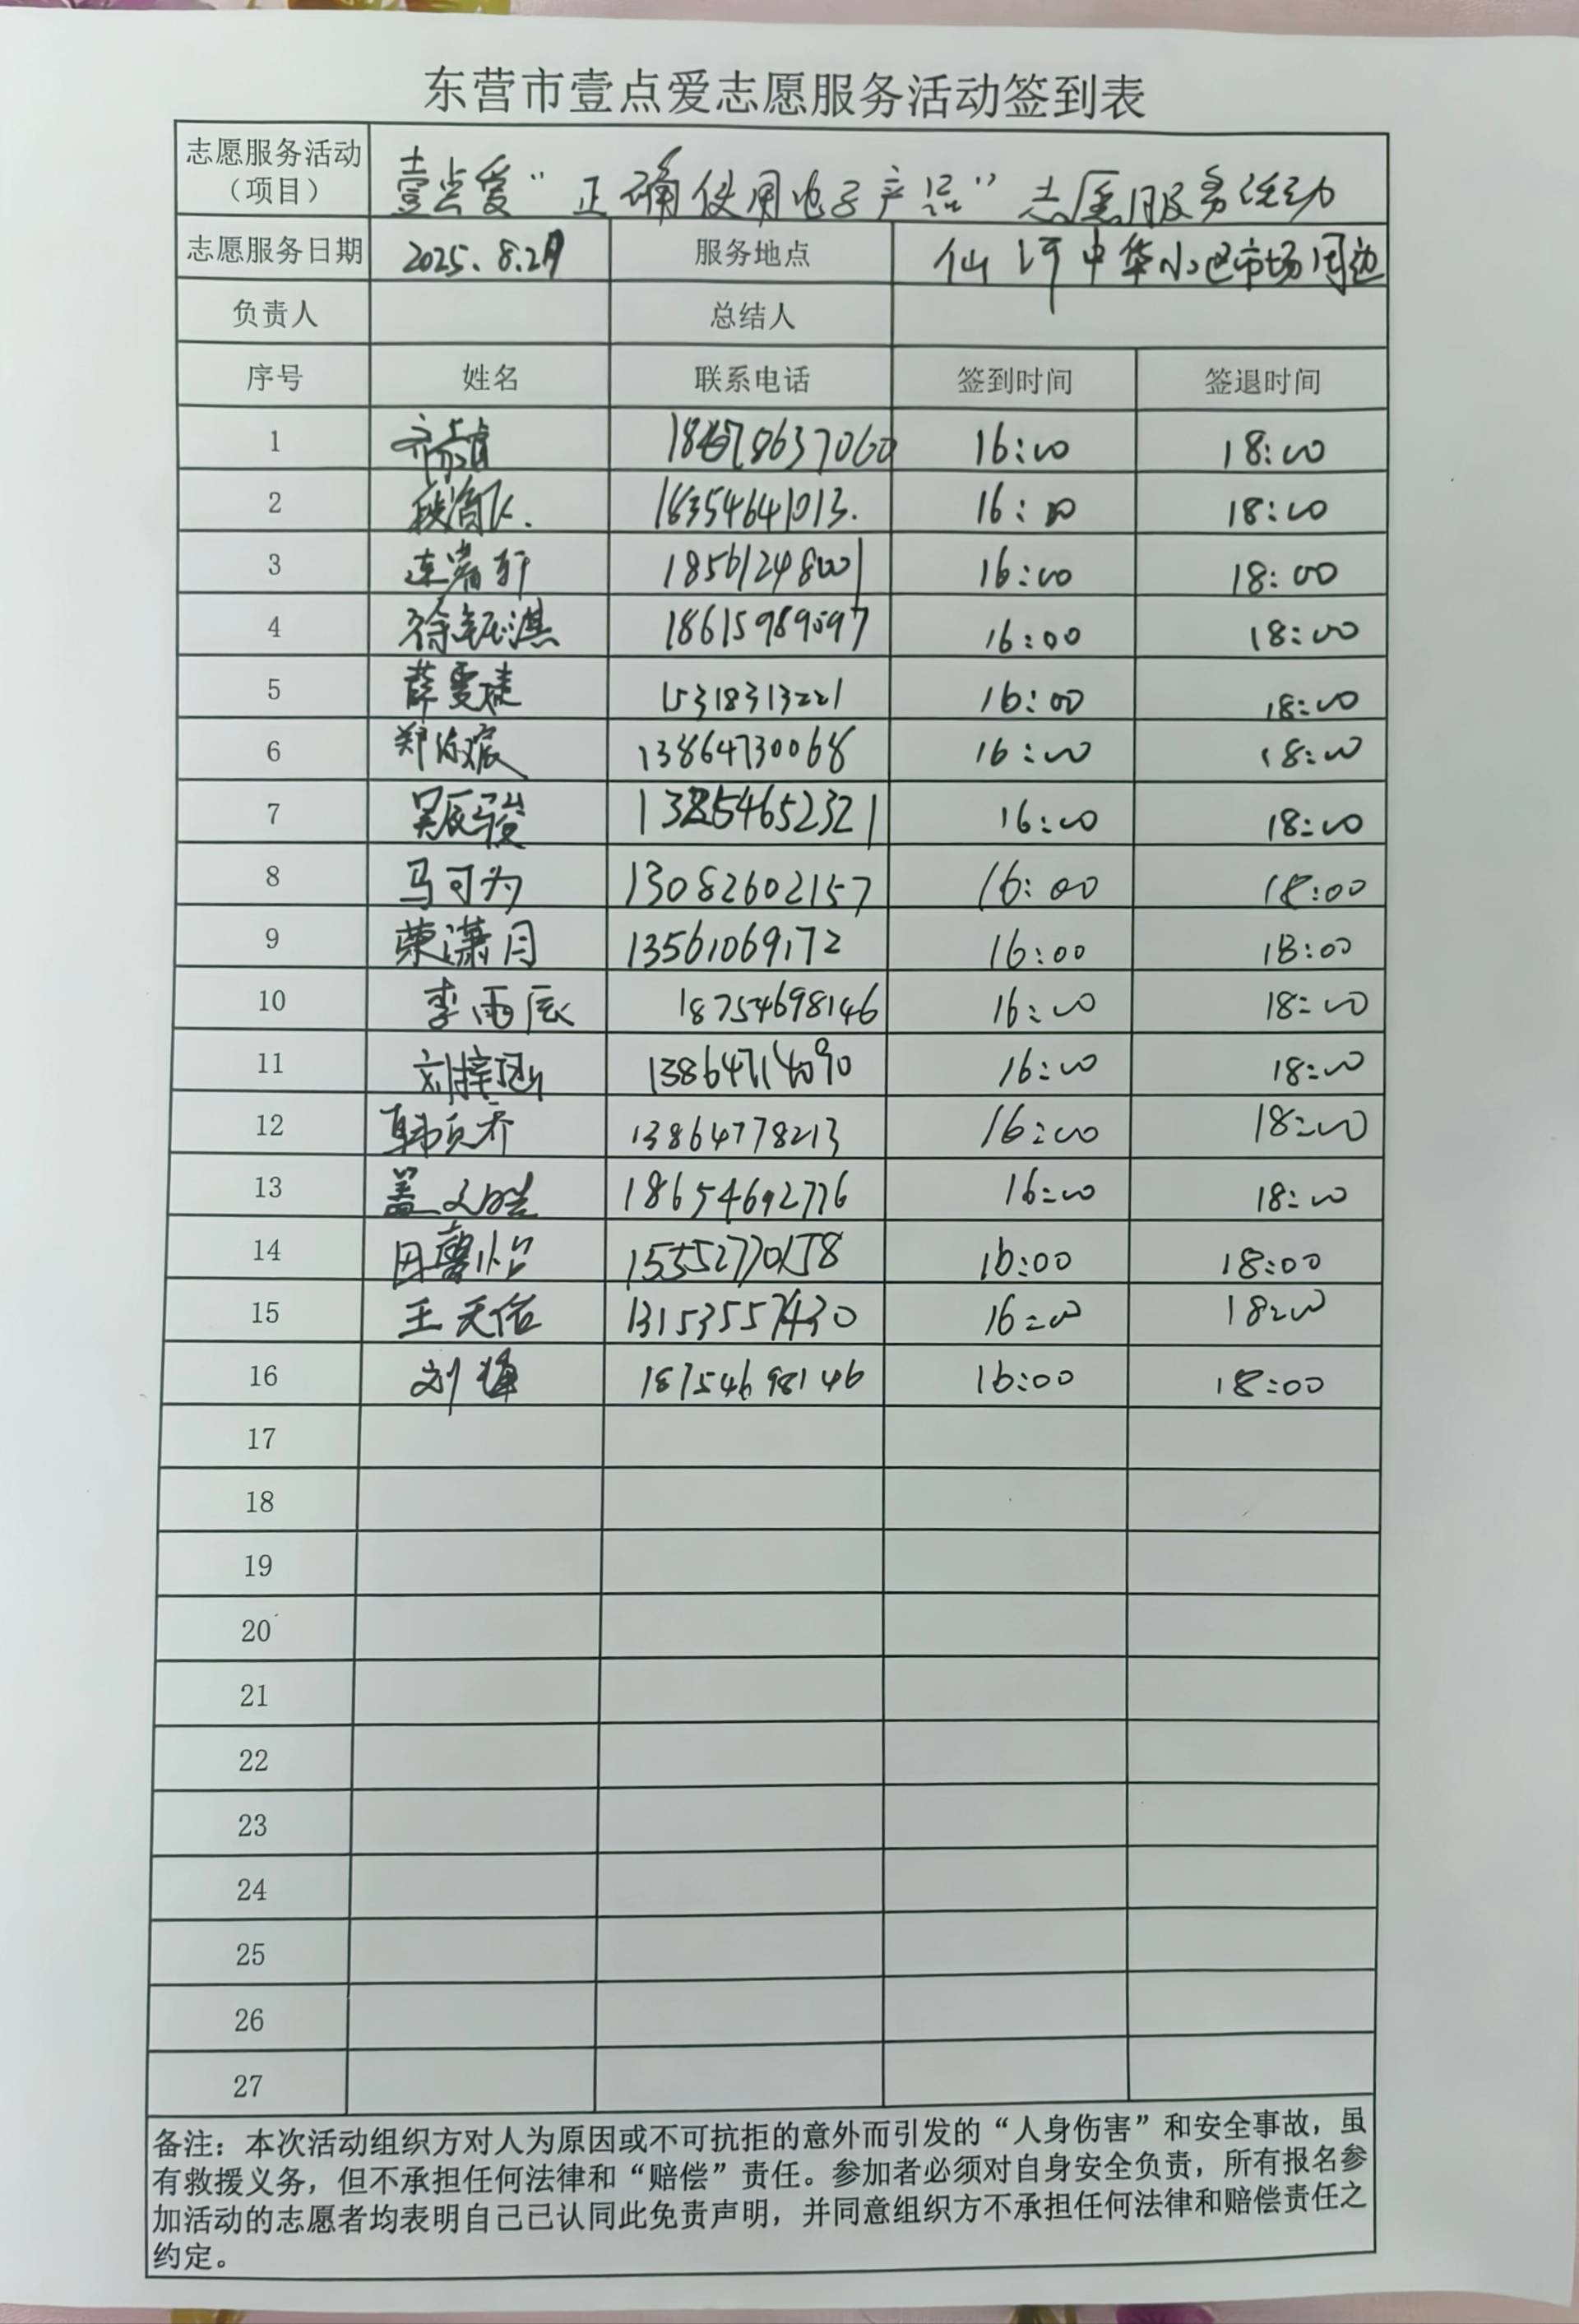 东营市壹点爱志愿服务活动签到表
志愿服务活动（项目） 壹点爱“正确使用电子产品”志愿服务活动
志愿服务日期 2025.8.2月 服务地点 仙河中华小区市场周边
负责人 总结人
序号 姓名 联系电话 签到时间 签退时间
1 16:00 18:00
2 18354641013. 16:00 18:00
3 18561248001 16:00 18:00
4 徐钰淇 18615989597 16:00 18:00
5 薛雯婕 15318313221 16:00 18:00
6 郑 13864730068 16:00 18:00
7 吴辰骏 13854652321 16:00 18:00
8 马可为 13082602157 16:00 18:00
9 荣潇月 13561069172 16:00 18:00
10 李雨辰 18754698146 16:00 18:00
11 刘梓涵 13864714090 16:00 18:00
12 韩贝乔 13864778213 16:00 18:00
13 盖文皓 18654692776 16:00 18:00
14 田馨怡 15552770158 16:00 18:00
15 王天佑 13153557430 16:00 18:00
16 刘 18754698146 16:00 18:00
17
18
19
20
21
22
23
24
25
26
27
备注：本次活动组织方对人为原因或不可抗拒的意外而引发的“人身伤害”和安全事故，虽
有救援义务，但不承担任何法律和“赔偿”责任。参加者必须对自身安全负责，所有报名参
加活动的志愿者均表明自己已认同此免责声明，并同意组织方不承担任何法律和赔偿责任之
约定。